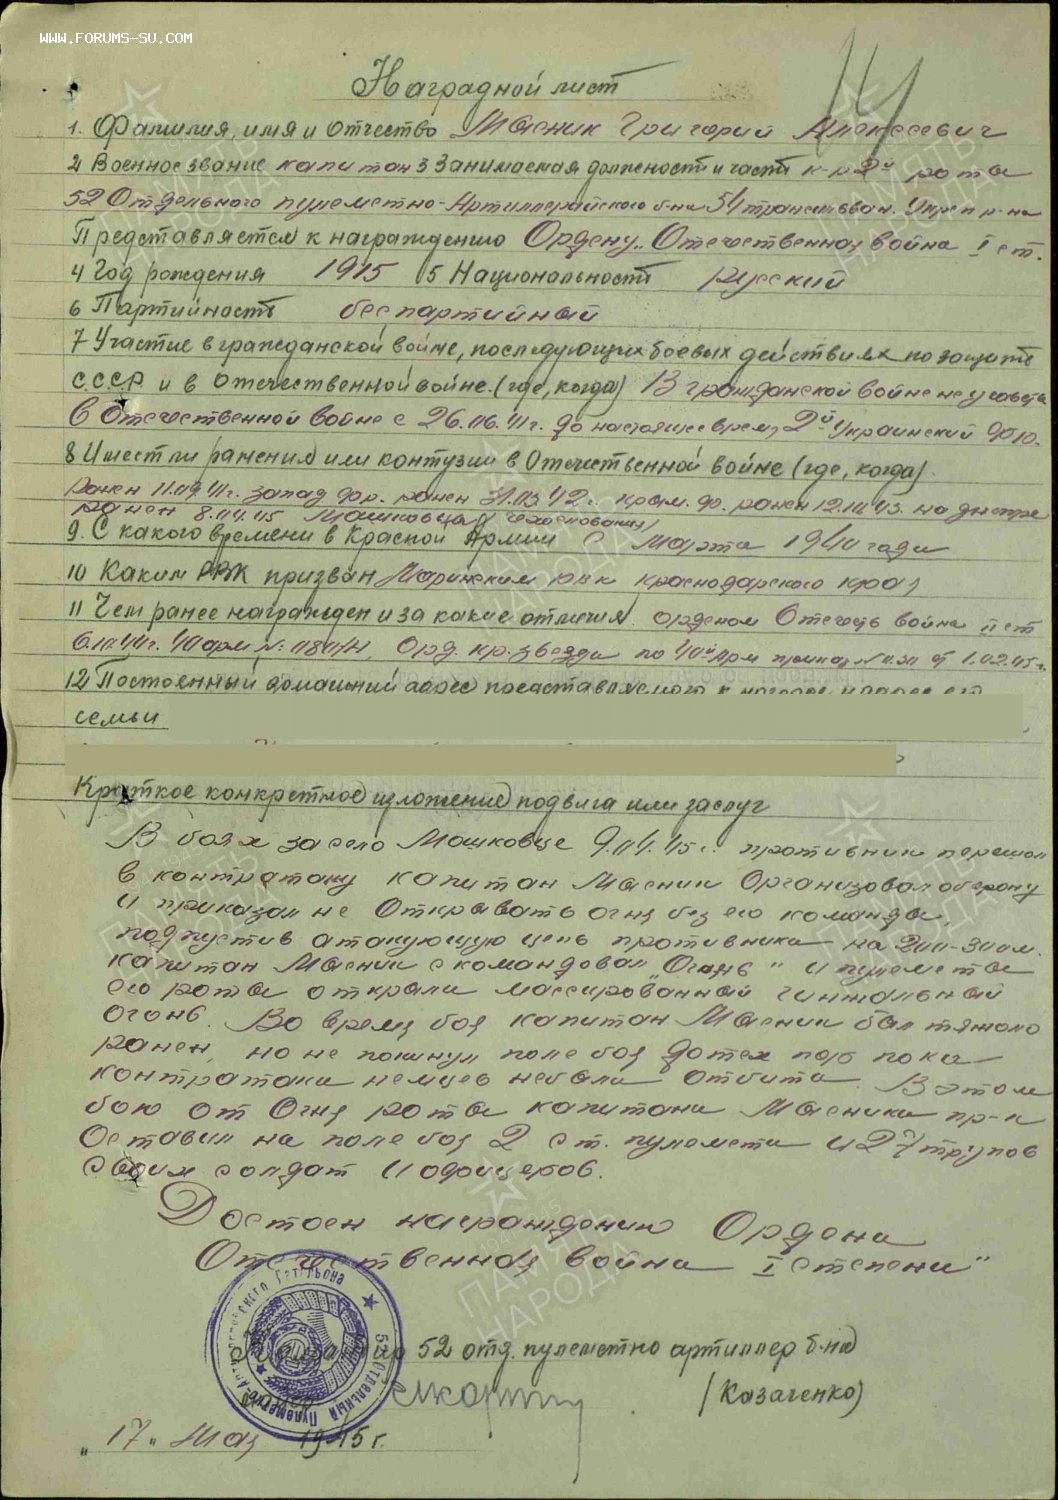 WWW.FORUMS-SU.COM
Наградной лист
1. Фамилия, имя и отчество Масник Григорий Алексеевич
2 Военное звание капитан 3 Занимаемая должность и часть к-р 2й роты
52 Отдельного пулеметно-Артиллерийского б-на 54 Укреп р-на
Представляется к награждению Ордену „Отечественная война I ст.
4 Год рождения 1915 5 Национальность русский
6 Партийность беспартийный
7 Участие в гражданской войне, последующих боевых действиях по защите
СССР и в Отечественной войне (где, когда) В гражданской войне не участв
В Отечественной войне с 26.06.41г. до настоящее время 2й Украинский фро.
8 Имест ли ранения или контузии в Отечественной войне (где, когда).
Ранен 11.09.41г. запад фр. ранен 31.03.42г. крым. фр. ранен 12.10.43. на днепре
ранен 8.04.45 Машковца
9. С какого времени в Красной Армии с Марта 1940 года
10 Каким РВК призван РВК Краснодарского края
11 Чем ранее награжден и за какие отличия. орденом Отечеств война II ст
40 арм № Орд. кр. звезда по 40й Арм приказ 1.02.45г.
12 Постоянный домашний адрес представляемого к
семьи
Краткое конкретное изложение подвига или заслуг
В боях за село Машковце 9.04.45г. противник перешол
в контратаку капитан Масник Организовал оборону
и приказал не Открывать огня без его команды,
подпустив атакующую цепь противника на 200-300м.
капитан Масник скомандовал „Огонь" и пулеметы
его роты открыли массированный кинжальный
огонь. Во время боя капитан Масник был тяжоло
ранен, но не покинул поле боя до тех пор пока
контратака немцев небыла отбита. В этом
бою от Огня роты капитана Масника пр-к
Оставил на поле боя 2 ст. пулемета и 27 трупов
своих солдат и офицеров.
Достоен награждения Ордена
Отечественная война I степени"
52 отд. пулеметно артиллер б-на
(Казаченко)
„17" Мая 1945г.
52 Отдельный Пулеметно-Артиллерийского Батальона
ПАМЯТЬ НАРОДА